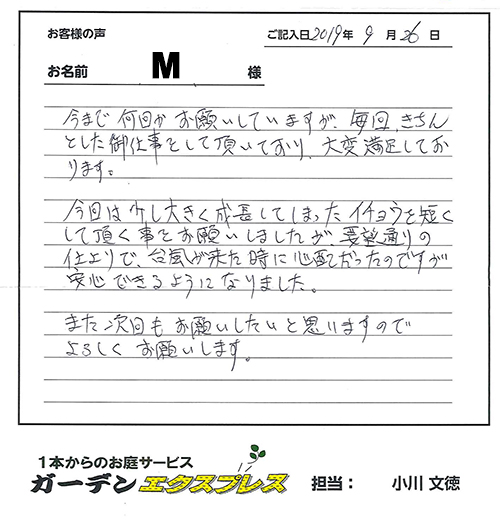 お客様の声
ご記入日2019年 9月 26日
お名前 M 様
今まで何回かお願いしていますが、毎回、きちん
とした御仕事をして頂いており、大変満足してお
ります。
今回は少し大きく成長してしまったイチョウを短く
して頂く事をお願いしましたが要望通りの
仕上りで、台風が来た時に心配だったのですが
安心できるようになりました。
また次回もお願いしたいと思いますので
よろしくお願いします。
1本からのお庭サービス
ガーデンエクスプレス 担当： 小川 文徳